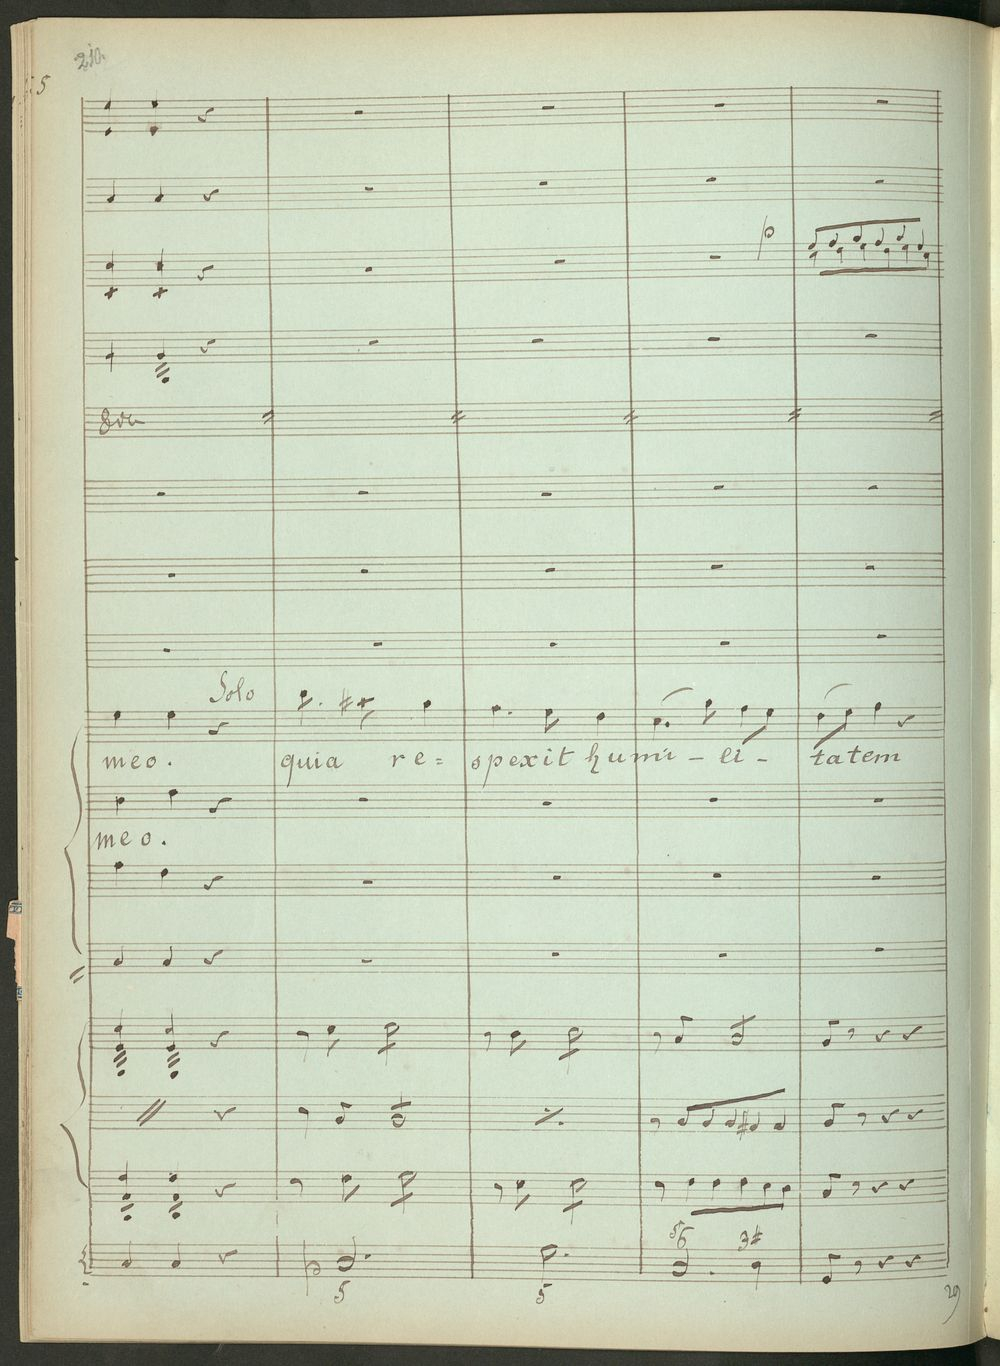 210.
5
p
Solo
meo. quia re= spexit humi - li - tatem
meo.
5 6 3#
p
5 5
29